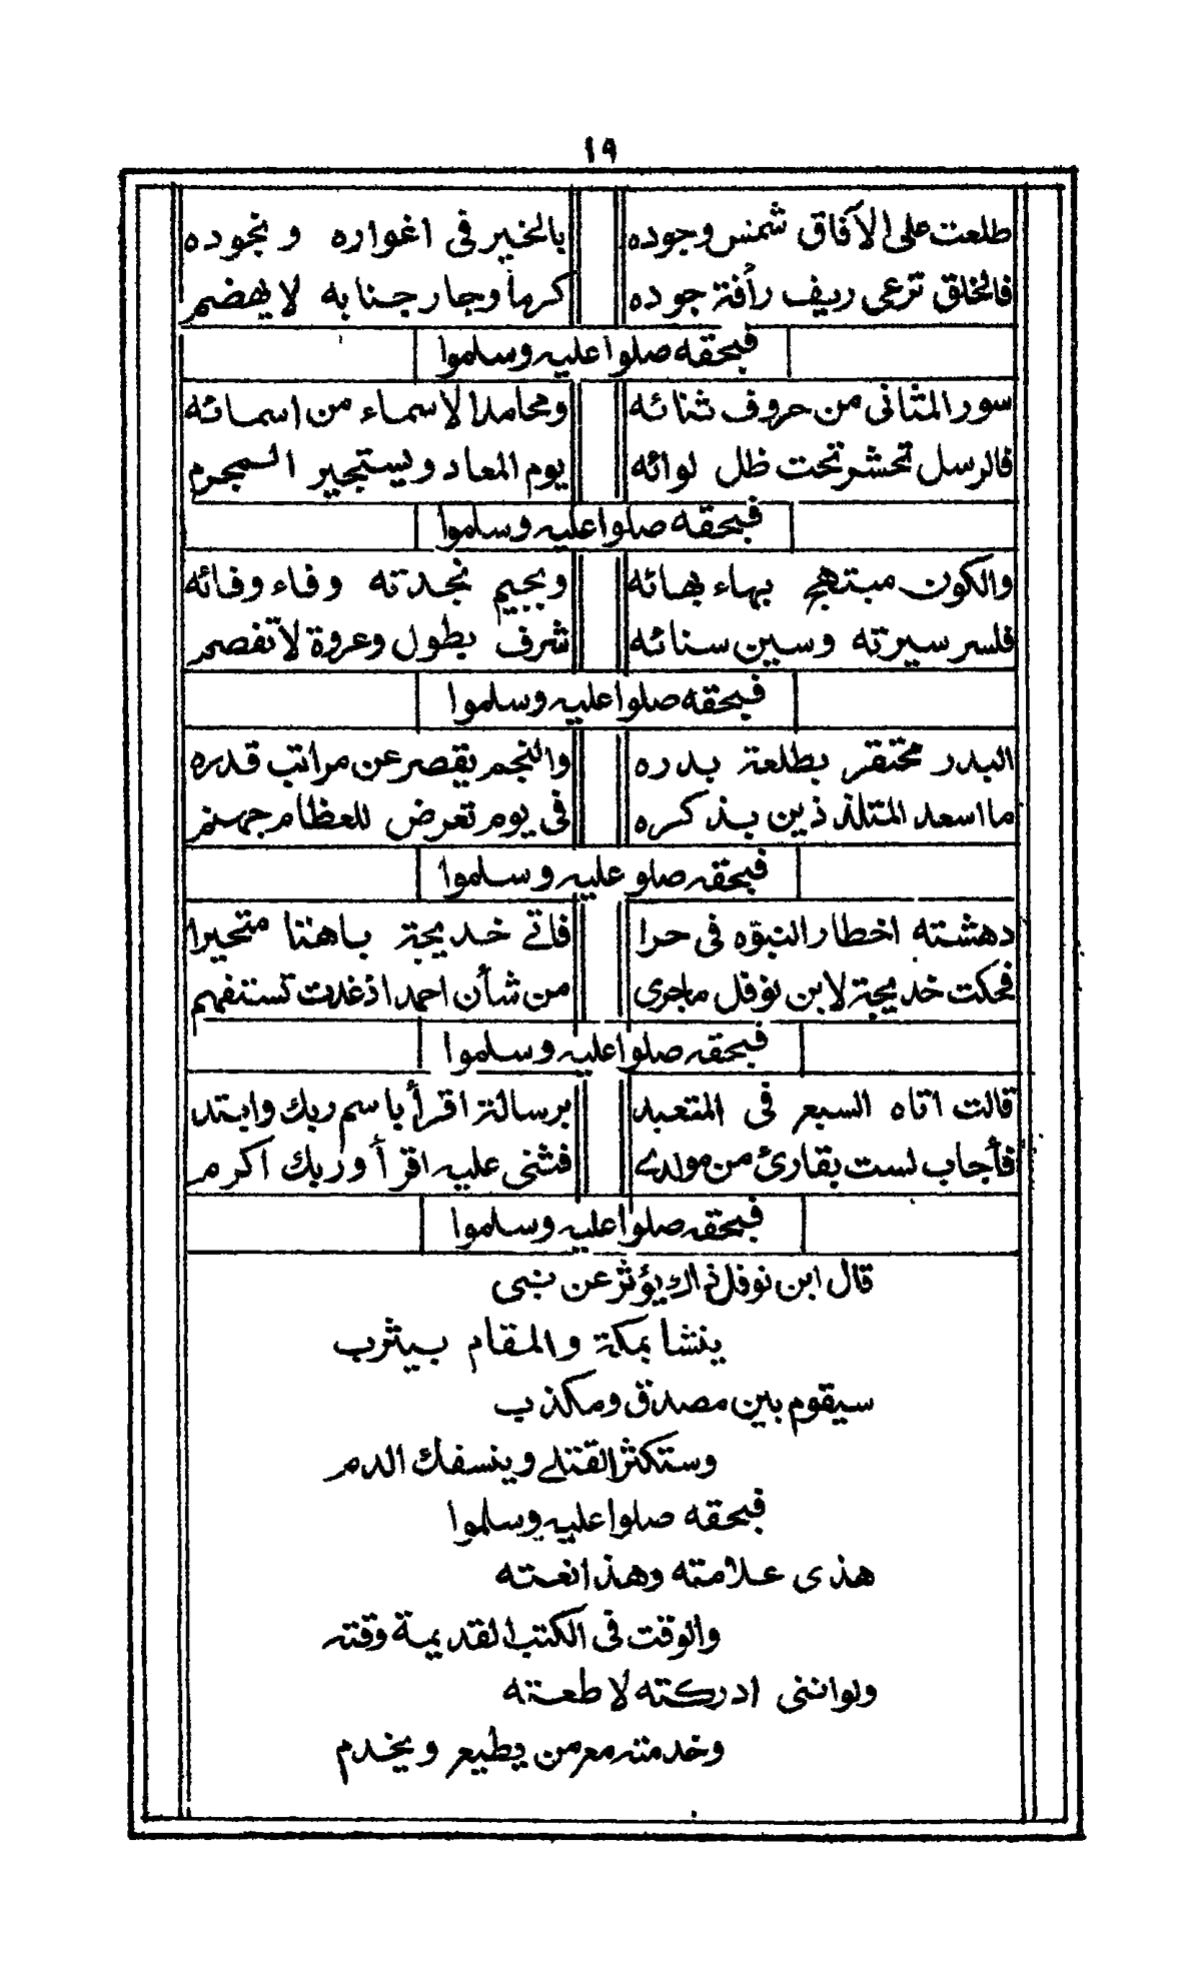 ١٩
طلعت على الآفاق شمس وجوده بالخير فى اغواره ونجوده
فالخلق ترعى ريف رأفة جوده كرما وجار جنابه لا يهضم
فبحقه صلوا عليه وسلموا
سور المثانى من حروف ثنائه ومحامد الاسماء من اسمائه
فالرسل تحشر تحت ظل لوائه يوم المعاد ويستجير المجرم
فبحقه صلوا عليه وسلموا
والكون مبتهج بهاء بهائه وبجيم نجدته وفاء وفائه
فلسر سيرته وسين سنائه شرف يطول وعروة لا تفصم
فبحقه صلوا عليه وسلموا
البدر محتقر بطلعة بدره والنجم يقصر عن مراتب قدره
ما اسعد المتلذذين بذكره فى يوم تعرض للعظام جهنم
فبحقه صلو عليه وسلموا
دهشته اخطار النبوه فى حرا فاتى خديجة باهتا متحيرا
فحكت خديجة لابن نوفل ماجرى من شأن احمد اذ غدت تستفهم
فبحقه صلوا عليه وسلموا
قالت اتاه السبع فى المتعبد برسالة اقرأ باسم ربك وابتد
فأجاب لست بقارئ من مولدى فثنى عليه اقرأ وربك اكرم
فبحقه صلوا عليه وسلموا
قال ابن نوفل ذاك يؤثر عن نبى
ينشا بمكة والمقام بيثرب
سيقوم بين مصدق ومكذب
وستكثر القتلى وينسفك الدم
فبحقه صلوا عليه وسلموا
هذى علامته وهذا نعته
والوقت فى الكتب القديمة وقته
ولو اننى ادركته لاطعته
وخدمته مع من يطيع ويخدم